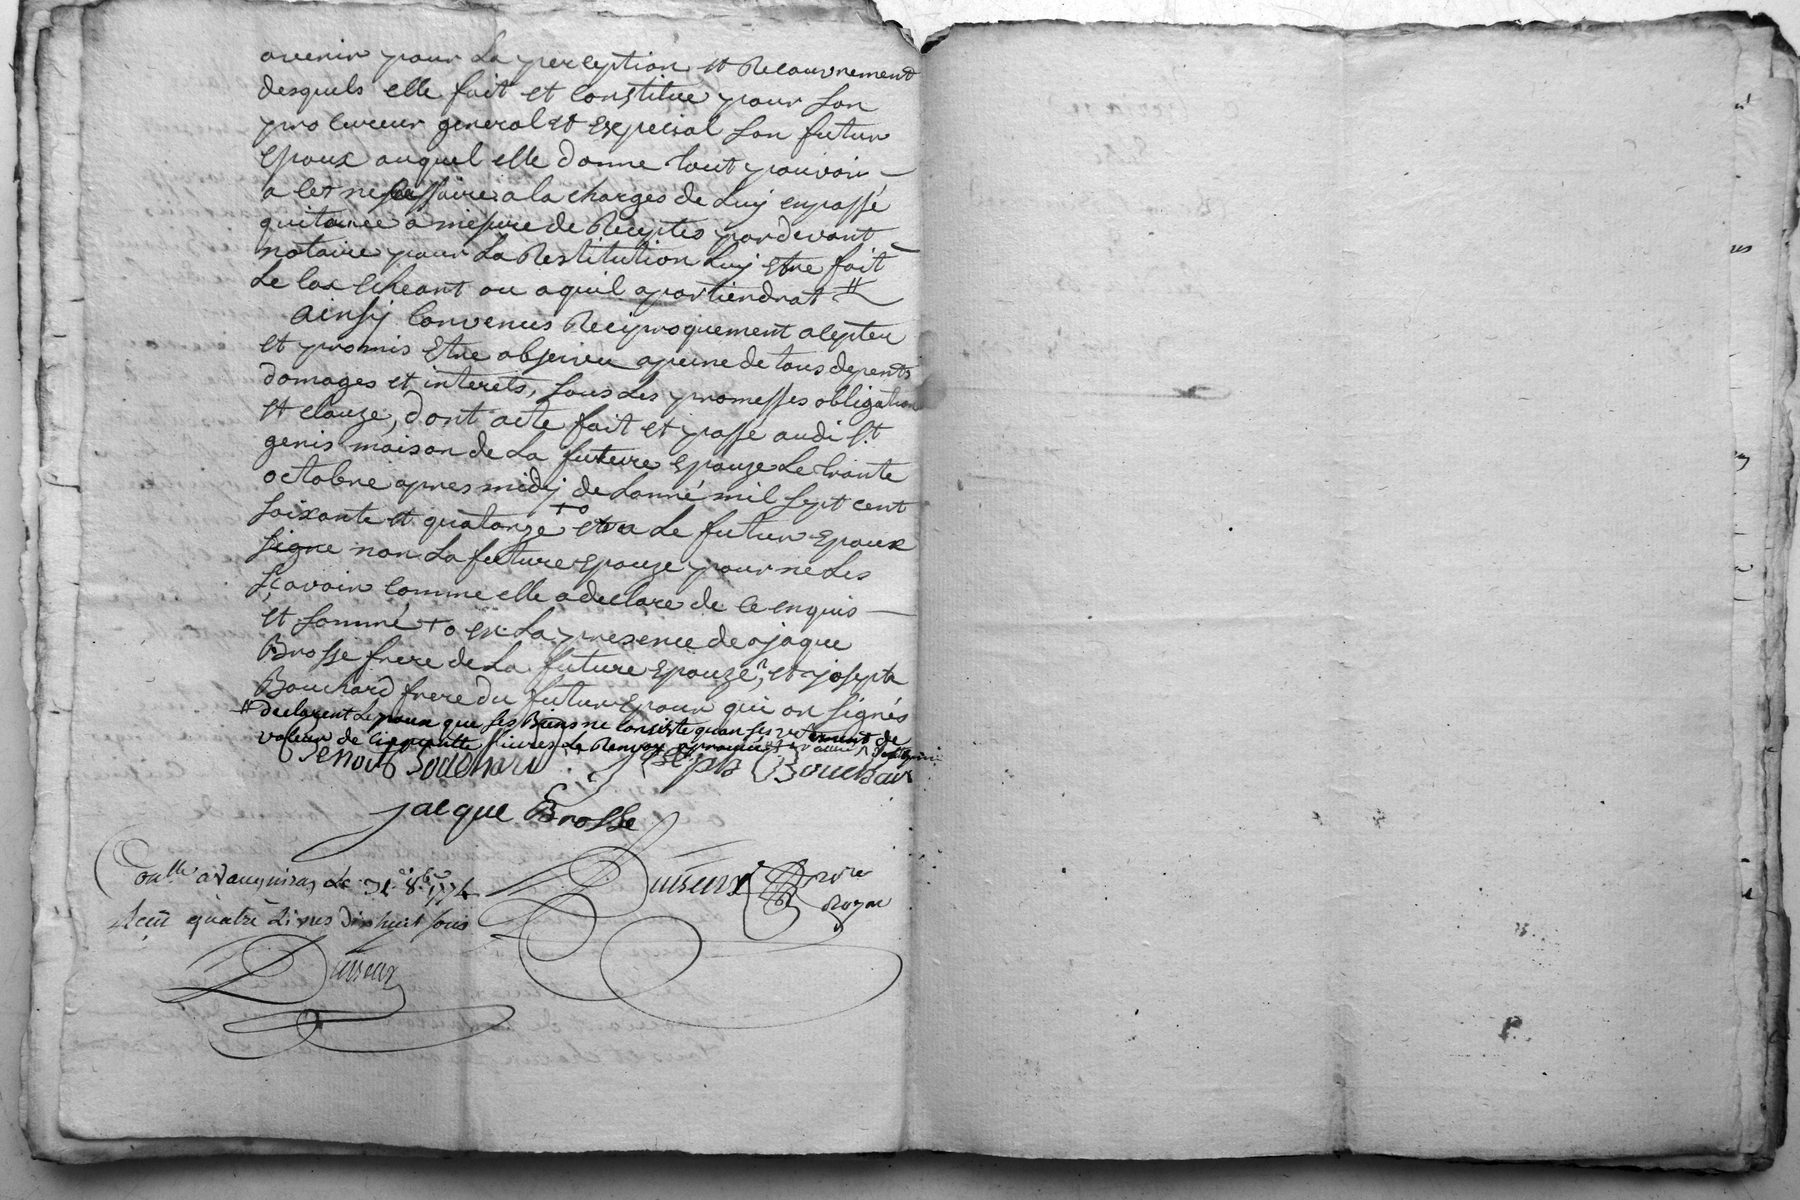 avenir pour La perception et Recouvrement
desquels elle fait et constitue pour son
procureur general et expecial son futur
Epoux auquel elle donne tout pouvoir
a cet nessessaire a la charges de Luy en passe
quitance a mesure de Receptes pardevant
notaire pour La Restitution Luy Etre fait
Le cas Echeant ou a quil apartiendrat //
ainsy Convenus Reciproquement acepter
et promis Etre observer a peine de tous depents
domages et interets, sous Les promesses obligation
et clauze, dont acte fait et passe audi St
genis maison de La future Epouze Le trante
octobre apres midy de Lanné mil sept cent
soixante et quatorze +o et a Le futur Epoux
signe non La future Epouze pour ne Les
sçavoir comme elle a declare de ce enquis
et sommé +o en La presence de jaque
Brosse frere de La future Epouze, et joseph
Bouchard frere du futur Epoux qui on signés
// declarent Lepoux que ses Biens ne consiste quan ses vetement de
valeur de cinquante livres Le Renvoy aprouvé
Benoit Bouchard joseph Bouchard
jacque Brosse
Conlle a Vaugneray Le 31 8bre 1774
Reçu quatre Livres dix huit sous
Duisseux nore
Royal
Duisseux